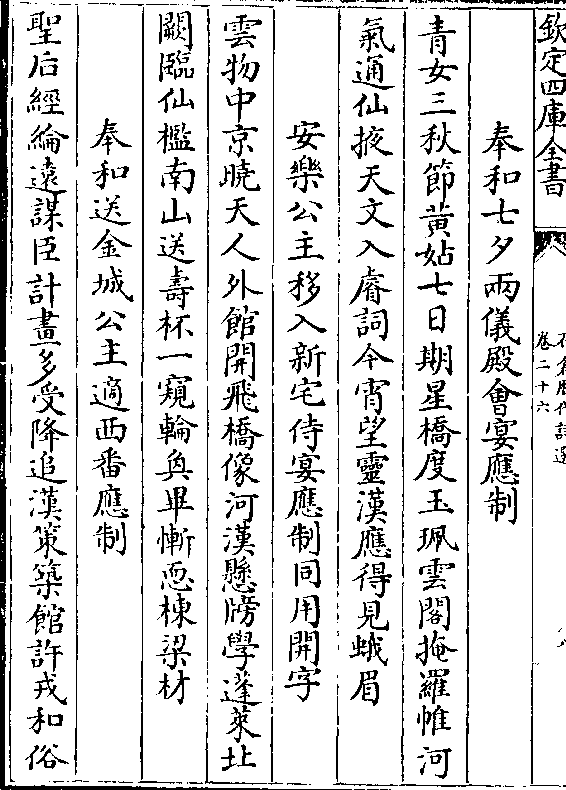 欽定四庫全書
卷二十六
奉和七夕兩儀殿會宴應制
青女三秋節黄姑七日期星橋度玉珮雲閣掩羅帷河
氣通仙掖天文入睿詞今宵望靈漢應得見蛾眉
安樂公主移入新宅侍宴應制同用開字
雲物中京曉天人外館開飛橋像河漢懸牓學蓬萊北
闕臨仙檻南山送壽杯一窺輪奐畢慚恧棟梁材
奉和送金城公主適西番應制
聖后經綸遠謀臣計畫多受降追漢策築館許戎和俗